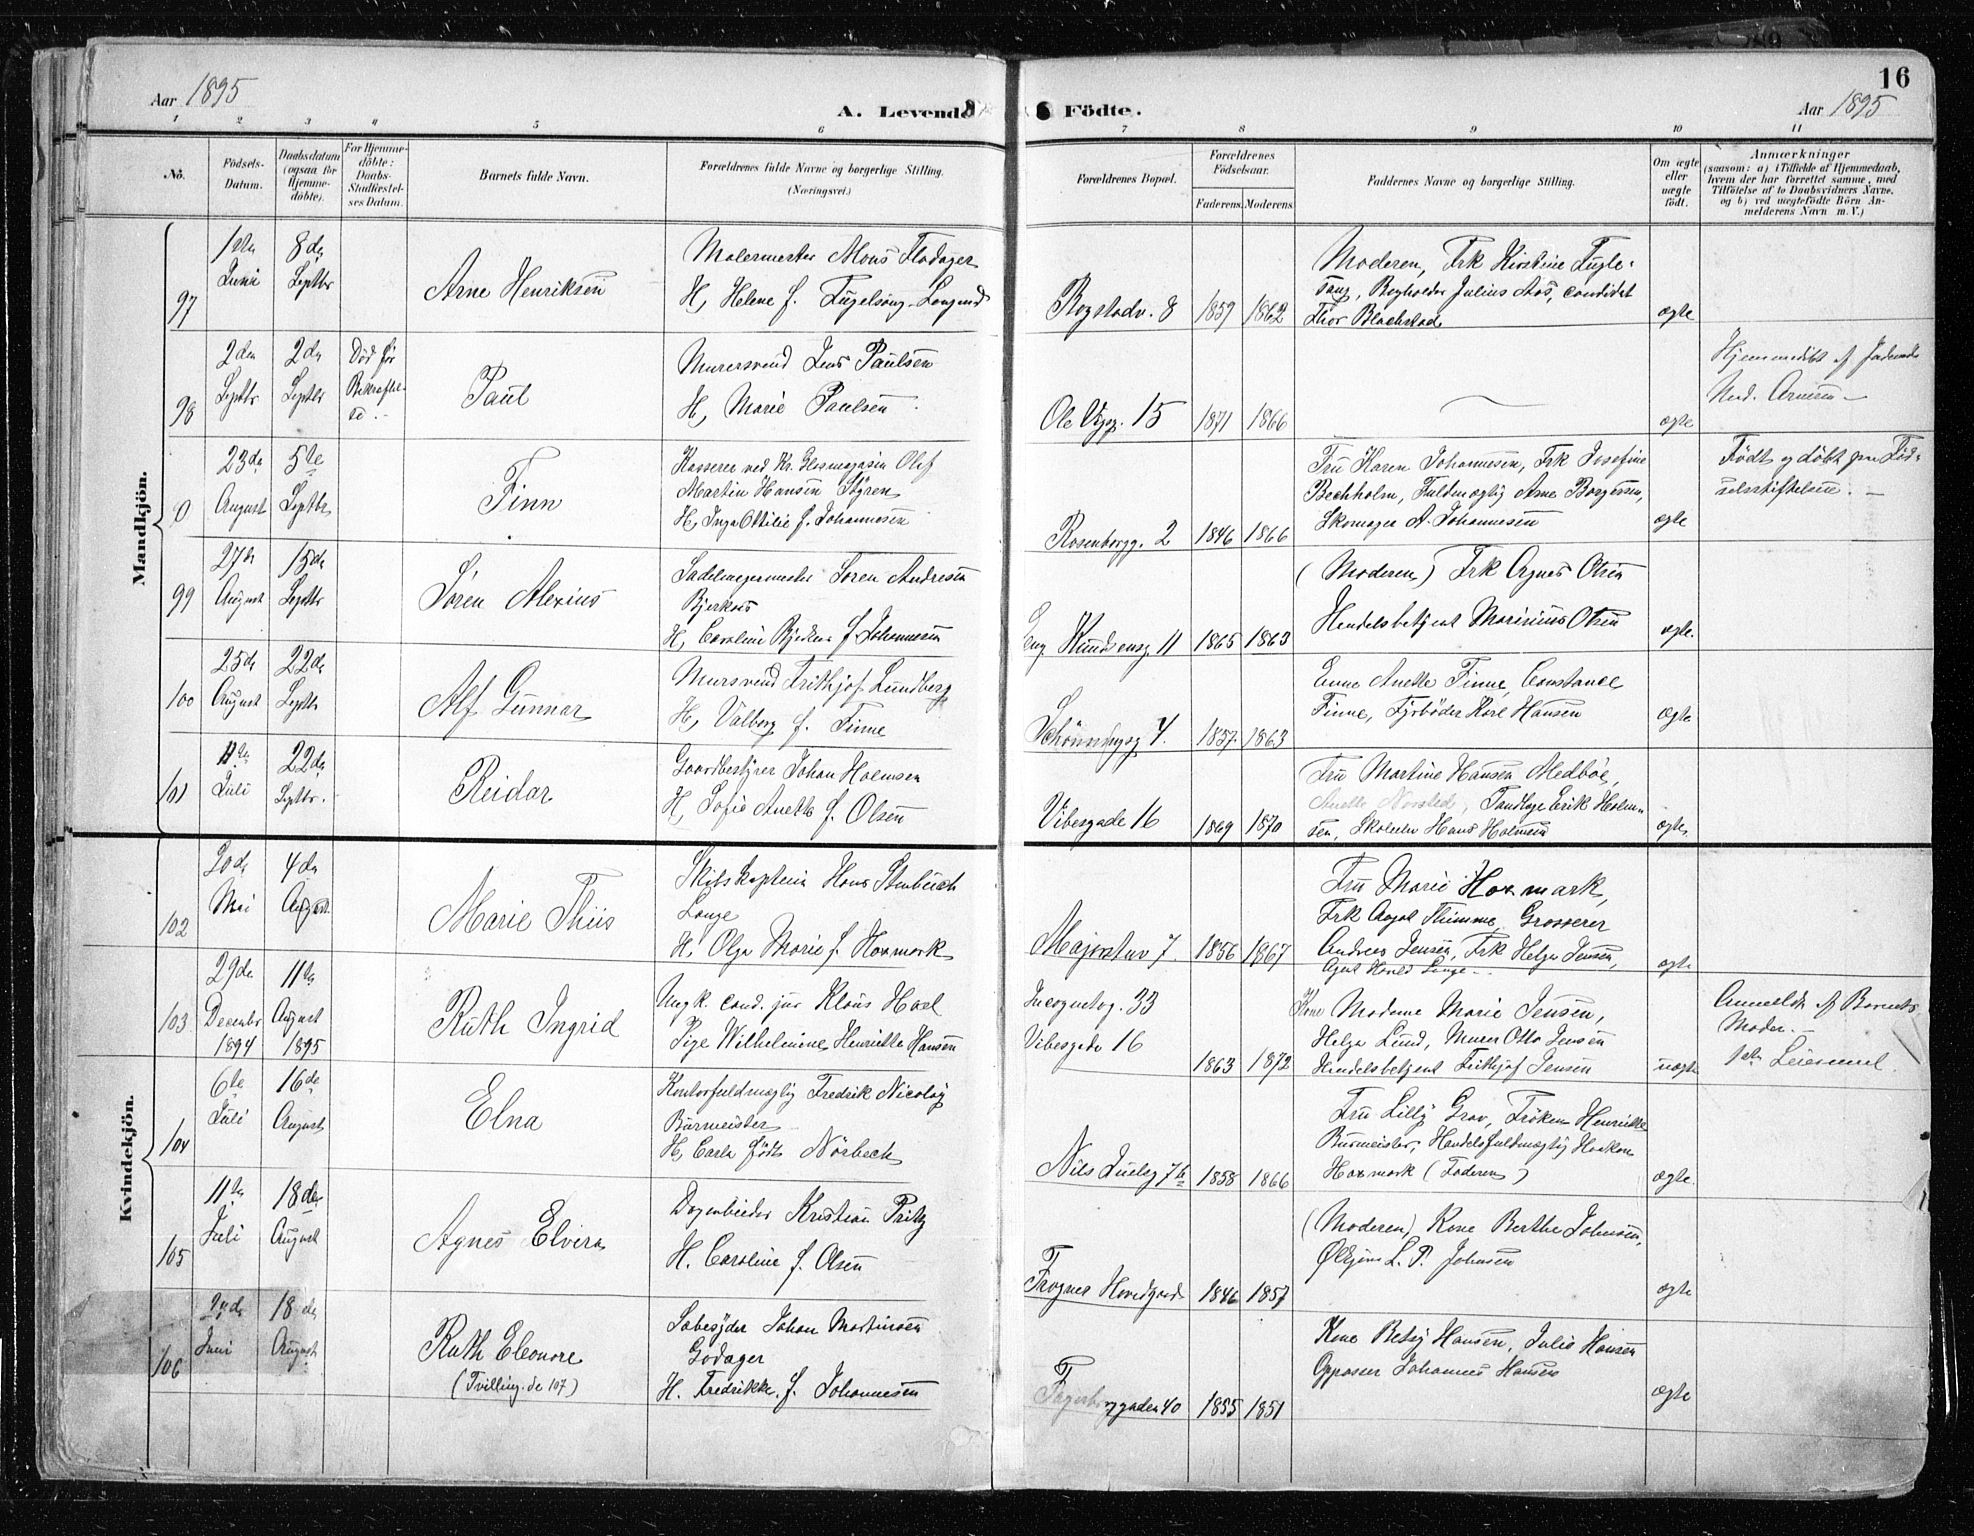 16
Aar 1895
A. Levende
Födte.
Aar 1895
1 2 3 4 5 6 7 8 9 10 11
No.
Födsels-
Datum.
Daabsdatum
(ogsaa for
Hjemme-
döbte).
For Hjemme-
döbte:
Daabs-
Stadfæstel-
ses Datum.
Barnets fulde Navn.
Forældrenes fulde Navne og borgerlige Stilling.
(Næringsvei.)
Forældrenes Bopæl.
Forældrenes
Födselsaar.
Faderens. Moderens.
Faddernes Navne og borgerlige Stilling.
Om ægte
eller
uægte
födt.
Anmærkninger
(saasom: a) i Tilfælde af Hjemmedaab,
hvem der har forrettet samme, med
Tilföielse af to Daabsvidners Navne,
og b) ved uægtefödte Börn An-
melderens Navn m. V.)
Mandkjön.
97
1ste
Juni
8de
Septbr
Arne Henriksen
Malermester Mons Flodager
H, Helene f. Fugelsang-
Bogstadv. 8
1859 1862
Moderen, Frk Kirstine Fugle-
sang, Bogholder Julius Aas, candidat
Thor Blachstad
ægte
98
2den
Septbr
2de
Septbr
Död før
Bekræftel-
se.-
Paul
Murersvend Jens Paulsen
H, Marie Paulsen
Ole Vigsg. 15
1871 1866
ægte
Hjemmedöbt af Jordemoder
Arnesen
0
23de
August
5te
Septbr
Finn
Kasserer ved Kr. Glasmagasin Olef
Martin Hansen Styren
H, Inga Ottilie f. Johannesen
Rosenborgg. 2
1846 1866
Fru Karen Johannesen, Frk Josefine
Bechholm, Fuldmægtig Arne Borgersen,
Skomager A. Johannesen
ægte
Födt og döbt paa Föd-
selsstiftelsen. -
99
27de
August
15de
Septbr
Søren Alexius
Sadelmagermester Søren Andresen
Bjerkaas
H, Caroline f. Johannesen
Eng. Knudsensg 11
1865 1863
(Moderen) Frk Agnes Olsen
Handelsbetjent Marinius Olsen
ægte.
100
25de
August
22de
Septbr
Alf Gunnar
Mursvend Frithjof Lundberg
H, Valborg f. Finne
Schönningsg 4.
1857. 1863
Enne Anette Finne, Constance
Finne, Fyrböder Karl Hansen
ægte
101
11te
Juli
22de
Septbr.
Reidar
Gaardbestyrer Johan Holmsen
H, Sofie Anette f. Olsen
Vibesgade 16
1869 1870
Fru Martine Hansen Medböe,
Anette Norsted, Tandlæge Erik Holm-
sen, Hans Holmsen
ægte
Kvindekjön.
102
20de
Mai
4de
August
Marie Thiis
Skibskaptein Hans Stenbuch
Lange
H. Olga Marie f. Hoxmark
Majorstuv 7.
1856 1867
Fru Marie Hoxmark,
Frk Aagot Thimme, Grosserer
Andreas Jensen, Frk Helga Jensen,
Agent Harald Lange -
ægte
103
29de
Decembr
1894
11te
August
1895
Ruth Ingrid
Ungk. cand. jur Klaus Hoel
Pige Wilhelmine Henriette Hansen
Incognitog. 33
Vibesgade 16
1863 1872
Kone Madame Marie Jensen,
Helga Lund, Murer Otto Jensen
Handelsbetjent Frithjof Jensen
uægte
Anmeldt af Barnets
Moder. -
1ste Leiermaal
104
6te
Juli
16de
August
Elna
Kontorfuldmægtig Fredrik Nicolay
Burmeister
H, Carla född Nörbech
Nils Juelsg 7b
1858 1866
Fru Lilly Grav, Fröken Henriette
Burmeister, Handelsfuldmægtig Haakon
Hoxmark (Faderen)
ægte.
105
11te
Juli
18de
August
Agnes Elvira
Dagarbeider Kristian Pritz
H. Caroline f. Olsen
Frogner Hovedgaard
1846 1857
(Moderen) Kone Berthe Johnsen,
L. P. Johnsen
ægte
106
Juni
18de
August
Ruth Eleonore
(Tvilling. se 107)
Johan Martinsen
Godager
H. Fredrikke, f. Johannesen
Fagerborggaden 40
1855 1851
Kone Betsy Hansen, Julie Hansen
Oppasser Johannes Hansen
ægte